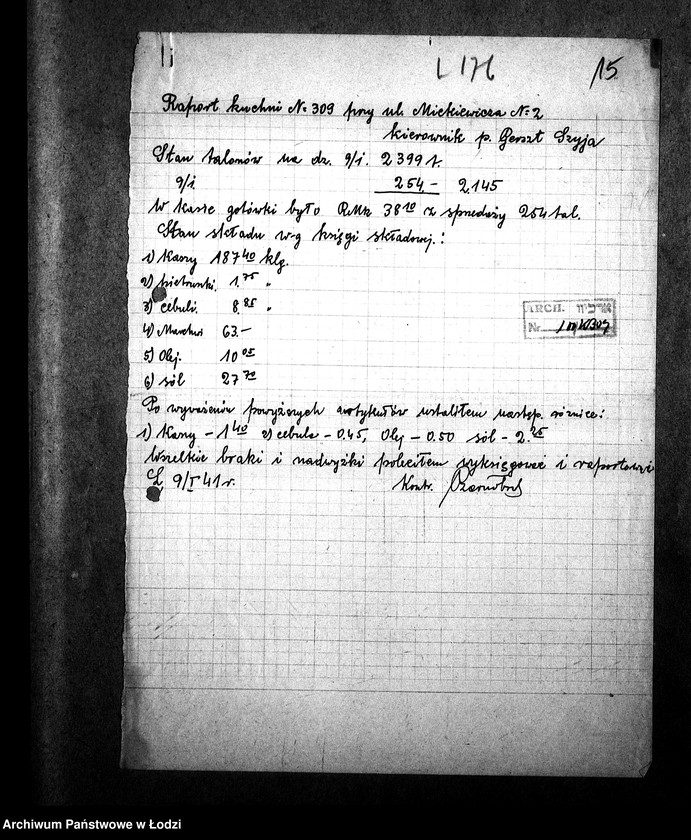 L 176 15
Raport kuchni № 309 przy ul. Mickiewicza № 2
kierownik p. Gerszt Szyja
Stan talonów na dz. 9/i. 2399 t.
9/i. 254.– 2.145
W kasie gotówki było RMk 38¹⁰ z sprzedaży 254 tal.
Stan składu w-g księgi składowej:
1) Kaszy 187⁴⁰ klg.
2) pietruszki 1.⁷⁵ "
3) cebuli. 8.⁸⁵ "
ARCH. ארכיון
4) Marchwi 63.–
Nr.
5) Olej. 10⁰⁵
6) sól 27⁷⁰
Po wyważeniu powyższych artykułów ustaliłem następ. różnice:
1) Kaszy – 1⁴⁰ 2) cebula – 0.45, Olej – 0.50 sól – 2.²⁵
Wszelkie braki i nadwyżki poleciłem wyksięgować i raportować
Ł. 9/I 41 r. Kontr.
Archiwum Państwowe w Łodzi